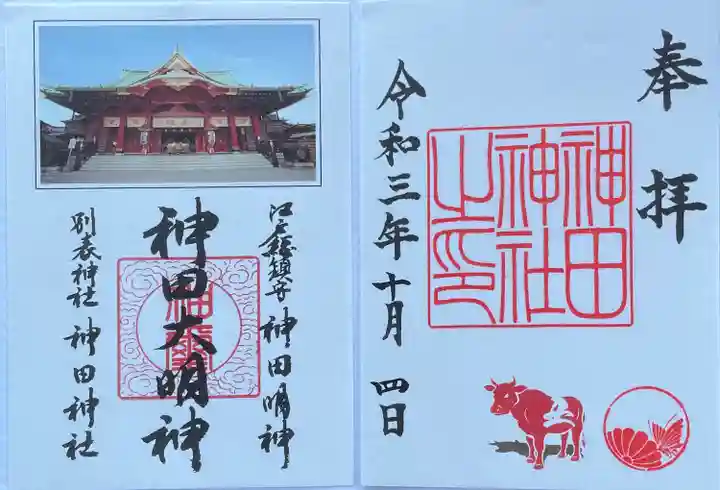 奉拝
神田
神社
之印
令和三年十月 四日
江戸総鎮守 神田明神
神田大明神
別表神社 神田神社